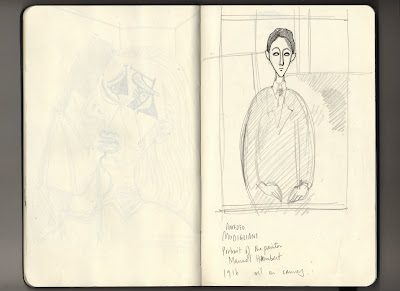 AMEDEO
MODIGLIANI
Portrait of the painter
Manuel Humbert
1916 oil on canvas